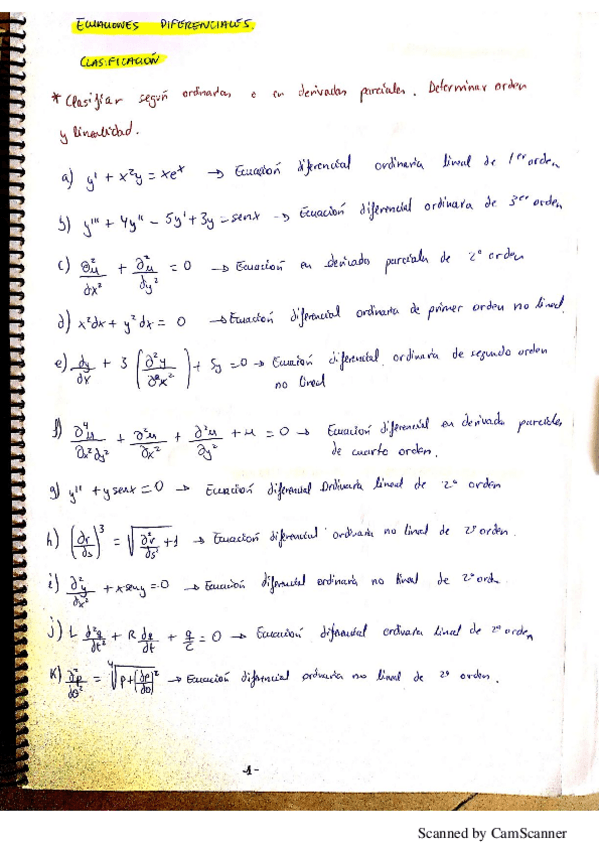 ECUACIONES DIFERENCIALES.
CLASIFICACIÓN
* Clasificar según ordinarias o en derivadas parciales. Determinar orden
y linealidad.
a) y' + x²y = xeˣ → Ecuación diferencial ordinaria lineal de 1er orden
b) y''' + 4y'' - 5y' + 3y = senx → Ecuación diferencial ordinara de 3er orden
c) ∂²u/∂x² + ∂²u/∂y² = 0 → Ecuación en derivadas parciales de 2º orden
d) x²dx + y²dx = 0 → Ecuación diferencial ordinaria de primer orden no lineal.
e) dy/dx + 3 (∂²y/∂x²) + 5y = 0 → Ecuación diferencial ordinaria de segundo orden
no lineal
f) ∂⁴u/∂x²∂y² + ∂²u/∂x² + ∂²u/∂y² + u = 0 → Ecuación diferencial en derivada parciales
de cuarto orden.
g) y'' + y senx = 0 → Ecuación diferencial Ordinaria lineal de 2º orden
h) (∂r/∂s)³ = √(∂²r/∂s² + 1) → Ecuación diferencial ordinaria no lineal de 2º orden.
i) ∂²y/∂x² + x seny = 0 → Ecuación diferencial ordinaria no lineal de 2º orde.
j) L d²q/dt² + R dq/dt + q/C = 0 → Ecuación diferencial ordinara lineal de 2º orden
K) ∂²p/∂θ² = ⁴√(p + (∂p/∂θ)²) → Ecuación diferencial ordinaria no lineal de 2º orden.
-1-
Scanned by CamScanner